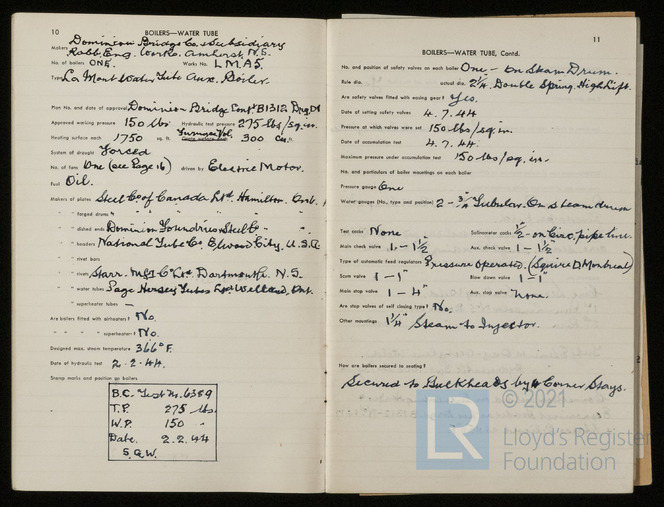 10
BOILERS—WATER TUBE
Makers Dominion Bridge Co. & Subsidiary
Robb. Eng. Works. Amherst, N.S.
No. of boilers ONE. Works No. L.M.A5.
Type La Mont Water Tube Aux. Boiler.
Plan No. and date of approval Dominion Bridge Coy's B1312 Drg
Approved working pressure 150 lbs Hydraulic test pressure 275 lbs/sq.in.
Heating surface each 1750 sq. ft. Furnace Vol. 300 Cu.
System of draught Forced
No. of fans One (see Page 16) driven by Electric Motor.
Fuel Oil.
Makers of plates Steel Co of Canada Ltd. Hamilton. Ont.
" forged drums "
" dished ends Dominion Foundries Steel Co -
" headers National Tube Co, Elwood City, U.S.A
" rivet bars
" rivets Starr. Mfg Co Ltd. Dartmouth. N.S.
" water tubes Page Hersey Tubes Ltd Welland, Ont.
" superheater tubes —
Are boilers fitted with airheaters? No.
" " " superheaters? No.
Designed max. steam temperature 366° F.
Date of hydraulic test 2.2.44.
Stamp marks and position on boilers
B.C. Test No. 6389
T.P. 275 lbs.
W.P. 150 "
Date. 2.2.44
S.G.W.
11
BOILERS—WATER TUBE, Contd.
No. and position of safety valves on each boiler One - On Steam Drum.
Rule dia. actual dia. 2¼ Double Spring. High Lift.
Are safety valves fitted with easing gear? Yes.
Date of setting safety valves 4.7.44
Pressure at which valves were set 150 lbs/sq.in.
Date of accumulation test 4.7.44.
Maximum pressure under accumulation test 150 lbs/sq.in.
No. and particulars of boiler mountings on each boiler
Pressure gauge One
Water gauges (No., type and position) 2 - ¾" Tubular. On steam drum
Test cocks None Salinometer cocks ½" - on Circ, pipe line.
Main check valve 1. - 1½" Aux. check valve 1 - 1½"
Type of automatic feed regulators Pressure operated. (Squire D, Montreal)
Scum valve 1 - 1" Blow down valve 1 - 1"
Main stop valve 1 - 4" Aux. stop valve None.
Are stop valves of self closing type? No.
Other mountings 1¼" Steam to Injector.
How are boilers secured to seating?
Secured to Bulkheads by 4 Corner Stays.
© 2021
LR
Lloyd's Register
Foundation